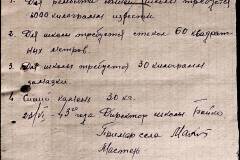 1. Для ремонта школы требуется
6000 килограмм извести.
2. Для школы требуется стекол 60 квадрат-
ных метров.
3. Для школы требуется 30 килограмм
замазки.
4. 30 кг.
43 года Директор школы Бойко
села
Мастер